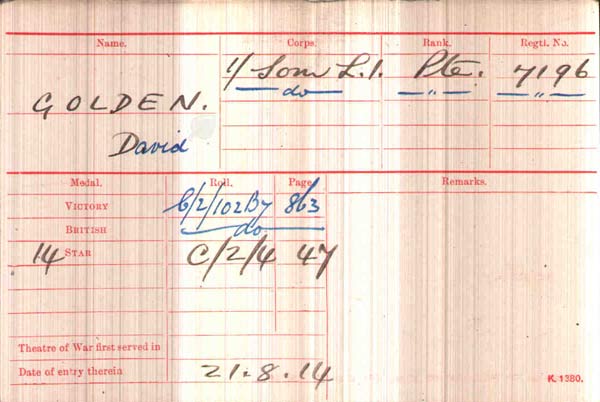 Name. Corps. Rank. Regtl. No.
1/ Som L.I. Pte. 7196
GOLDEN. do " "
David
Medal. Roll. Page. Remarks.
VICTORY C/2/102B7 863
BRITISH do
14 STAR C/2/4 47
Theatre of War first served in
Date of entry therein 21.8.14
K. 1380.